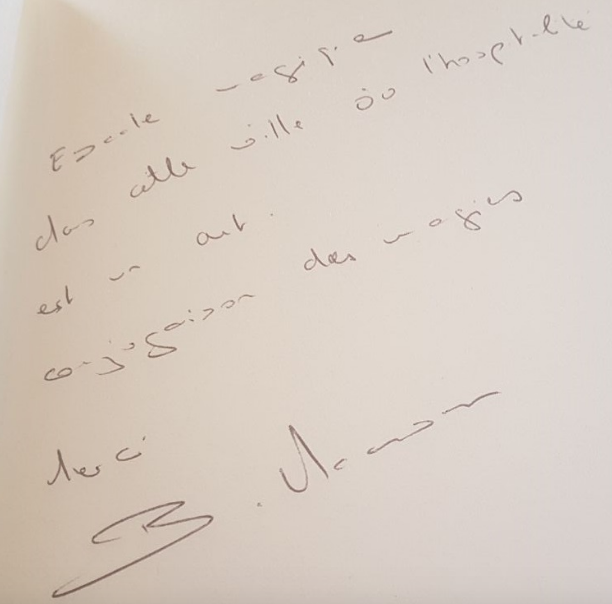 Escale magique
dans cette ville où l'hospitalité
est un art.
conjugaison des magies
Merci
B.